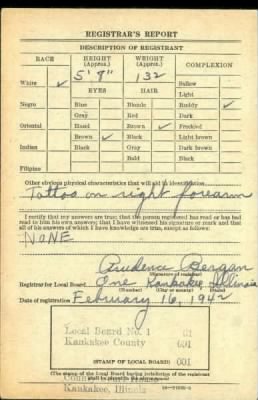 REGISTRAR'S REPORT
DESCRIPTION OF REGISTRANT
RACE HEIGHT (Approx.) WEIGHT (Approx.) COMPLEXION
5' 8" 132 Sallow
White ✓ Light
EYES HAIR Ruddy ✓
Negro Blue Blonde Dark
Gray Red Freckled
Oriental Hazel Brown ✓ Light brown
Brown ✓ Black Dark brown
Indian Black Gray Black
Bald
Filipino
Other obvious physical characteristics that will aid in identification
Tattoo on right forearm
I certify that my answers are true; that the person registered has read or has had
read to him his own answers; that I have witnessed his signature or mark and that
all of his answers of which I have knowledge are true, except as follows:
NONE
Prudence Bergan
(Signature of registrar)
Registrar for Local Board One Kankakee, Illinois
(Number) (City or county) (State)
Date of registration February 16, 1942
Local Board No. 1 61
Kankakee County 091
001
(STAMP OF LOCAL BOARD)
(The stamp of the Local Board having jurisdiction of the registrant
shall be placed in the above space)
Kankakee, Illinois